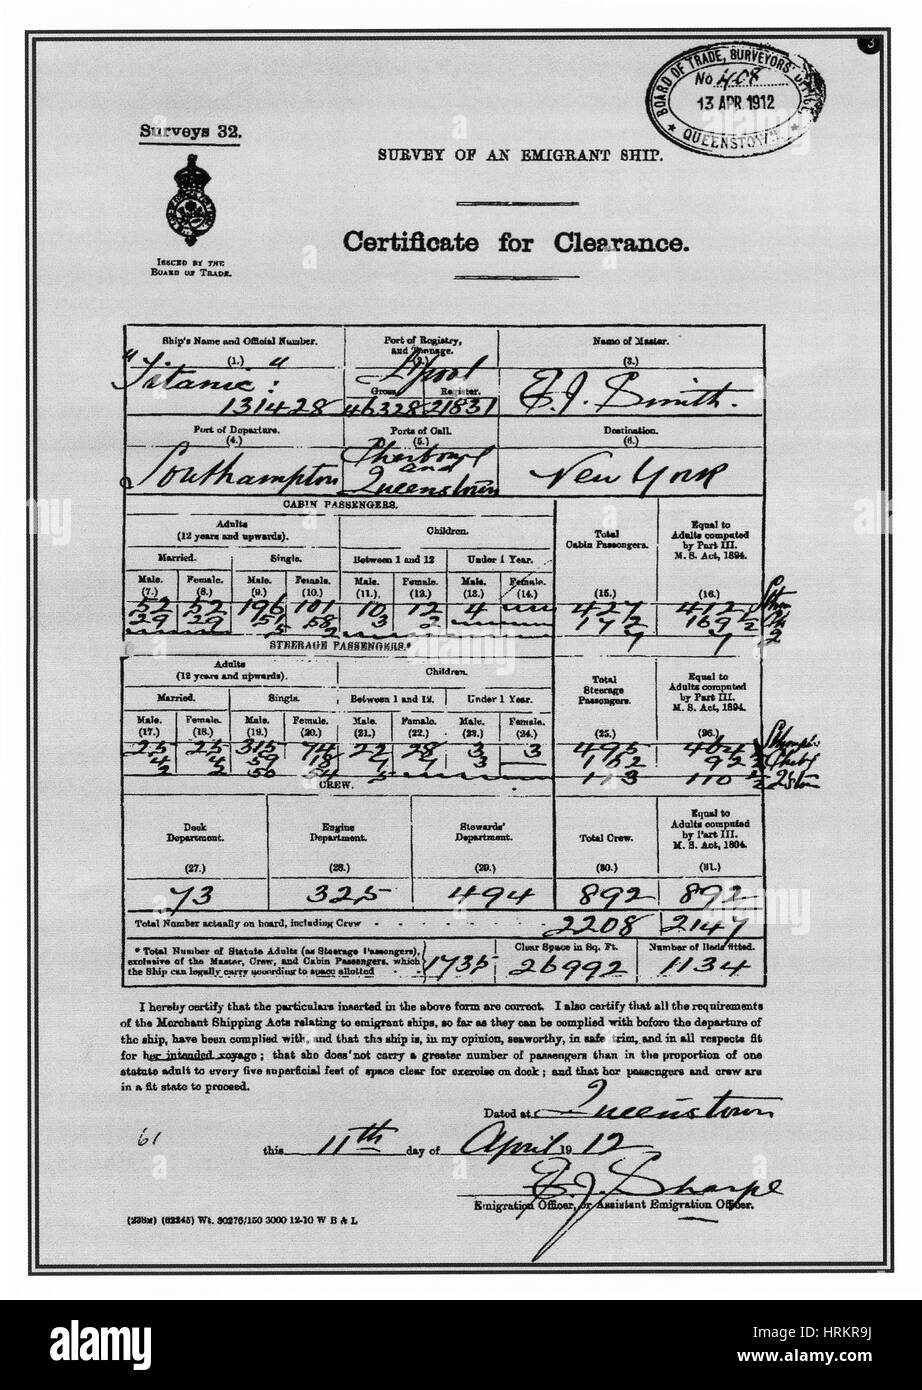 3
BOARD OF TRADE, SURVEYORS'
No 408
13 APR 1912
QUEENSTOWN
Surveys 32.
SURVEY OF AN EMIGRANT SHIP.
ISSUED BY THE
BOARD OF TRADE.
Certificate for Clearance.
Ship's Name and Official Number.
(1.)
"Titanic"
131428
Port of Registry,
and Tonnage.
L'pool
Gross. Register.
46328 21831
Name of Master.
(3.)
E. J. Smith.
Port of Departure.
(4.)
Southampton
Ports of Call.
(5.)
Cherbourg
and
Queenstown
Destination.
(6.)
New York
CABIN PASSENGERS.
Adults
(12 years and upwards).
Children.
Total
Cabin Passengers.
Equal to
Adults computed
by Part III.
M. S. Act, 1894.
Married. Single. Between 1 and 12 Under 1 Year.
Male. Female. Male. Female. Male. Female. Male. Female.
(7.) (8.) (9.) (10.) (11.) (12.) (13.) (14.) (15.) (16.)
52 52 196 101 10 12 4 427 412
29 29 51 58 3 2 172 169 1/2
5 2 7 7
STEERAGE PASSENGERS.*
Adults
(12 years and upwards).
Children.
Total
Steerage
Passengers.
Equal to
Adults computed
by Part III.
M. S. Act, 1894.
Married. Single. Between 1 and 12. Under 1 Year.
Male. Female. Male. Female. Male. Female. Male. Female.
(17.) (18.) (19.) (20.) (21.) (22.) (23.) (24.) (25.) (26.)
25 25 315 74 22 28 3 3 495 464
4 4 59 18 3 92 1/2
2 2 50 54 113 110 1/2
CREW.
Deck
Department.
(27.)
Engine
Department.
(28.)
Stewards'
Department.
(29.)
Total Crew.
(30.)
Equal to
Adults computed
by Part III.
M. S. Act, 1894.
(31.)
73 325 494 892 892
Total Number actually on board, including Crew 2208 2147
* Total Number of Statute Adults (as Steerage Passengers),
exclusive of the Master, Crew, and Cabin Passengers, which
the Ship can legally carry according to space allotted
1735
Clear Space in Sq. Ft.
26992
Number of Beds fitted.
1134
I hereby certify that the particulars inserted in the above form are correct. I also certify that all the requirements
of the Merchant Shipping Acts relating to emigrant ships, so far as they can be complied with before the departure of
the ship, have been complied with, and that the ship is, in my opinion, seaworthy, in safe trim, and in all respects fit
for her intended voyage; that she does not carry a greater number of passengers than in the proportion of one
statute adult to every five superficial feet of space clear for exercise on deck; and that her passengers and crew are
in a fit state to proceed.
Dated at Queenstown
61
this 11th day of April 1912
E. J. Sharpe
Emigration Officer, or Assistant Emigration Officer.
(238M) (62245) Wt. 30276/150 3000 12-10 W B & L
alamy
Image ID: HRKR9J
www.alamy.com